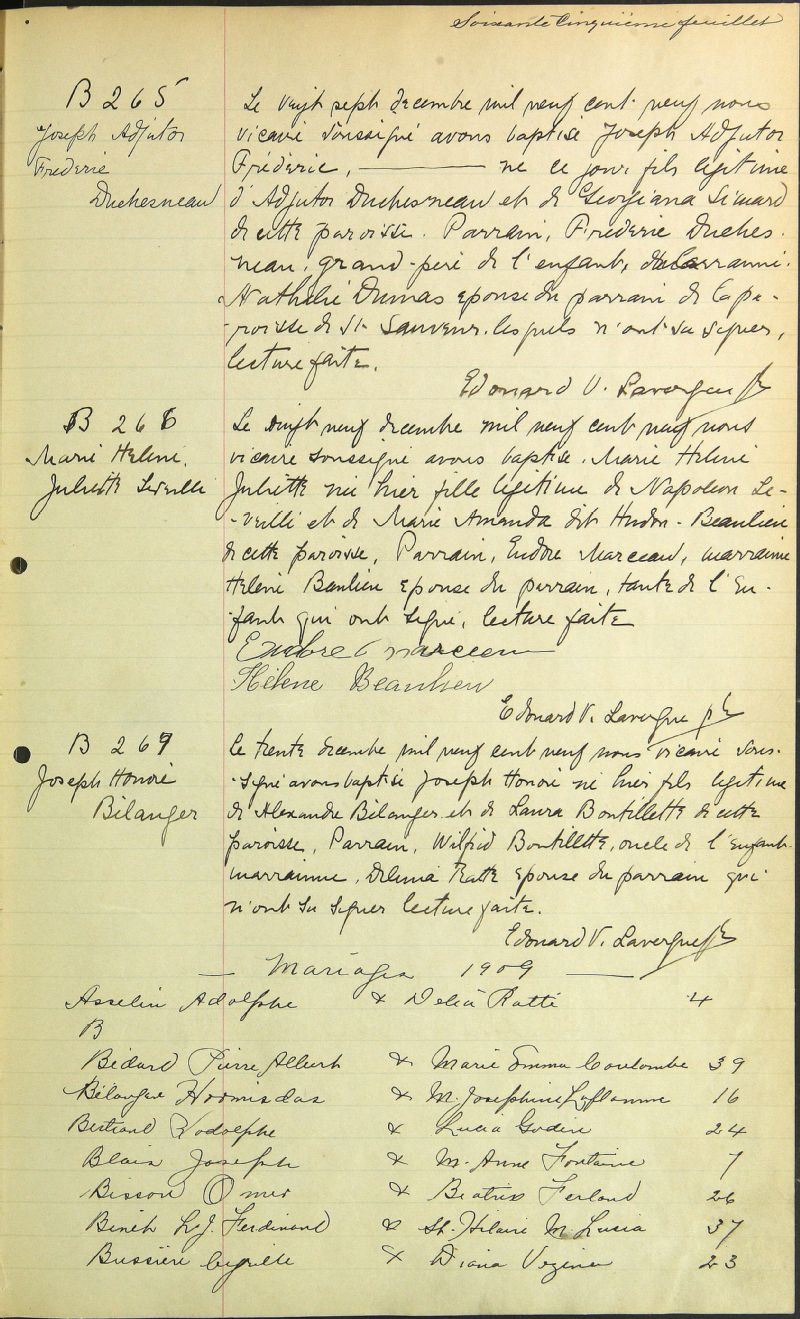 Soixante Cinquième feuillet
B 265
Joseph Adjutor
Fréderic
Duchesneau
Le vingt sept decembre mil neuf cent neuf nous
vicaire soussigné avons baptisé Joseph Adjutor
Fréderic, ——— né ce jour, fils légitime
d'Adjutor Duchesneau et de Georgiana Simard
de cette paroisse. Parrain, Fréderic Duches-
neau, grand-père de l'enfant,
Nathalie Dumas epouse du parrain de la pa-
-roisse de St Sauveur lesquels n'ont su signer,
lecture faite.
Edouard V. Lavergne ptr
B 266
Marie Helene,
Juliette Leveille
Le vingt neuf decembre mil neuf cent neuf nous
vicaire soussigné avons baptisé Marie Helene
Juliette née hier fille légitime de Napoleon Le-
-veillé et de Marie Amanda dit Hudon-Beaulieu
de cette paroisse, Parrain, Eudore Marceau, marraine
Helene Beaulieu epouse du parrain, tante de l'en-
-fant qui ont signé, lecture faite
Eudore Marceau
Hélène Beaulieu
Edouard V. Lavergne ptr
B 267
Joseph Honoré
Bélanger
Le trente decembre mil neuf cent neuf nous vicaire sous-
-signé avons baptisé Joseph Honoré né hier fils légitime
de Alexandre Bélanger et de Laura Boutillette de cette
paroisse, Parrain, Wilfrid Boutillette, oncle de l'enfant
marrainne, Délima Ratté epouse du parrain qui
n'ont su signer lecture faite.
Edouard V. Lavergne ptr
— Mariages 1909 —
Asselin Adolphe & Delia Ratté 4
B
Bédard Pierre Albert & Marie Emma Coulombe 39
Bélanger Hormisdas & M. Josephine Laflamme 16
Bertrand Rodolphe & Lucia Godin 24
Blais Joseph & M. Anne Fontaine 7
Bisson Omer & Beatrix Ferland 26
Binet L. J. Ferdinand & St. Hilaire M. Lucia 37
Bussière Cyrille & Diana Vezina 23